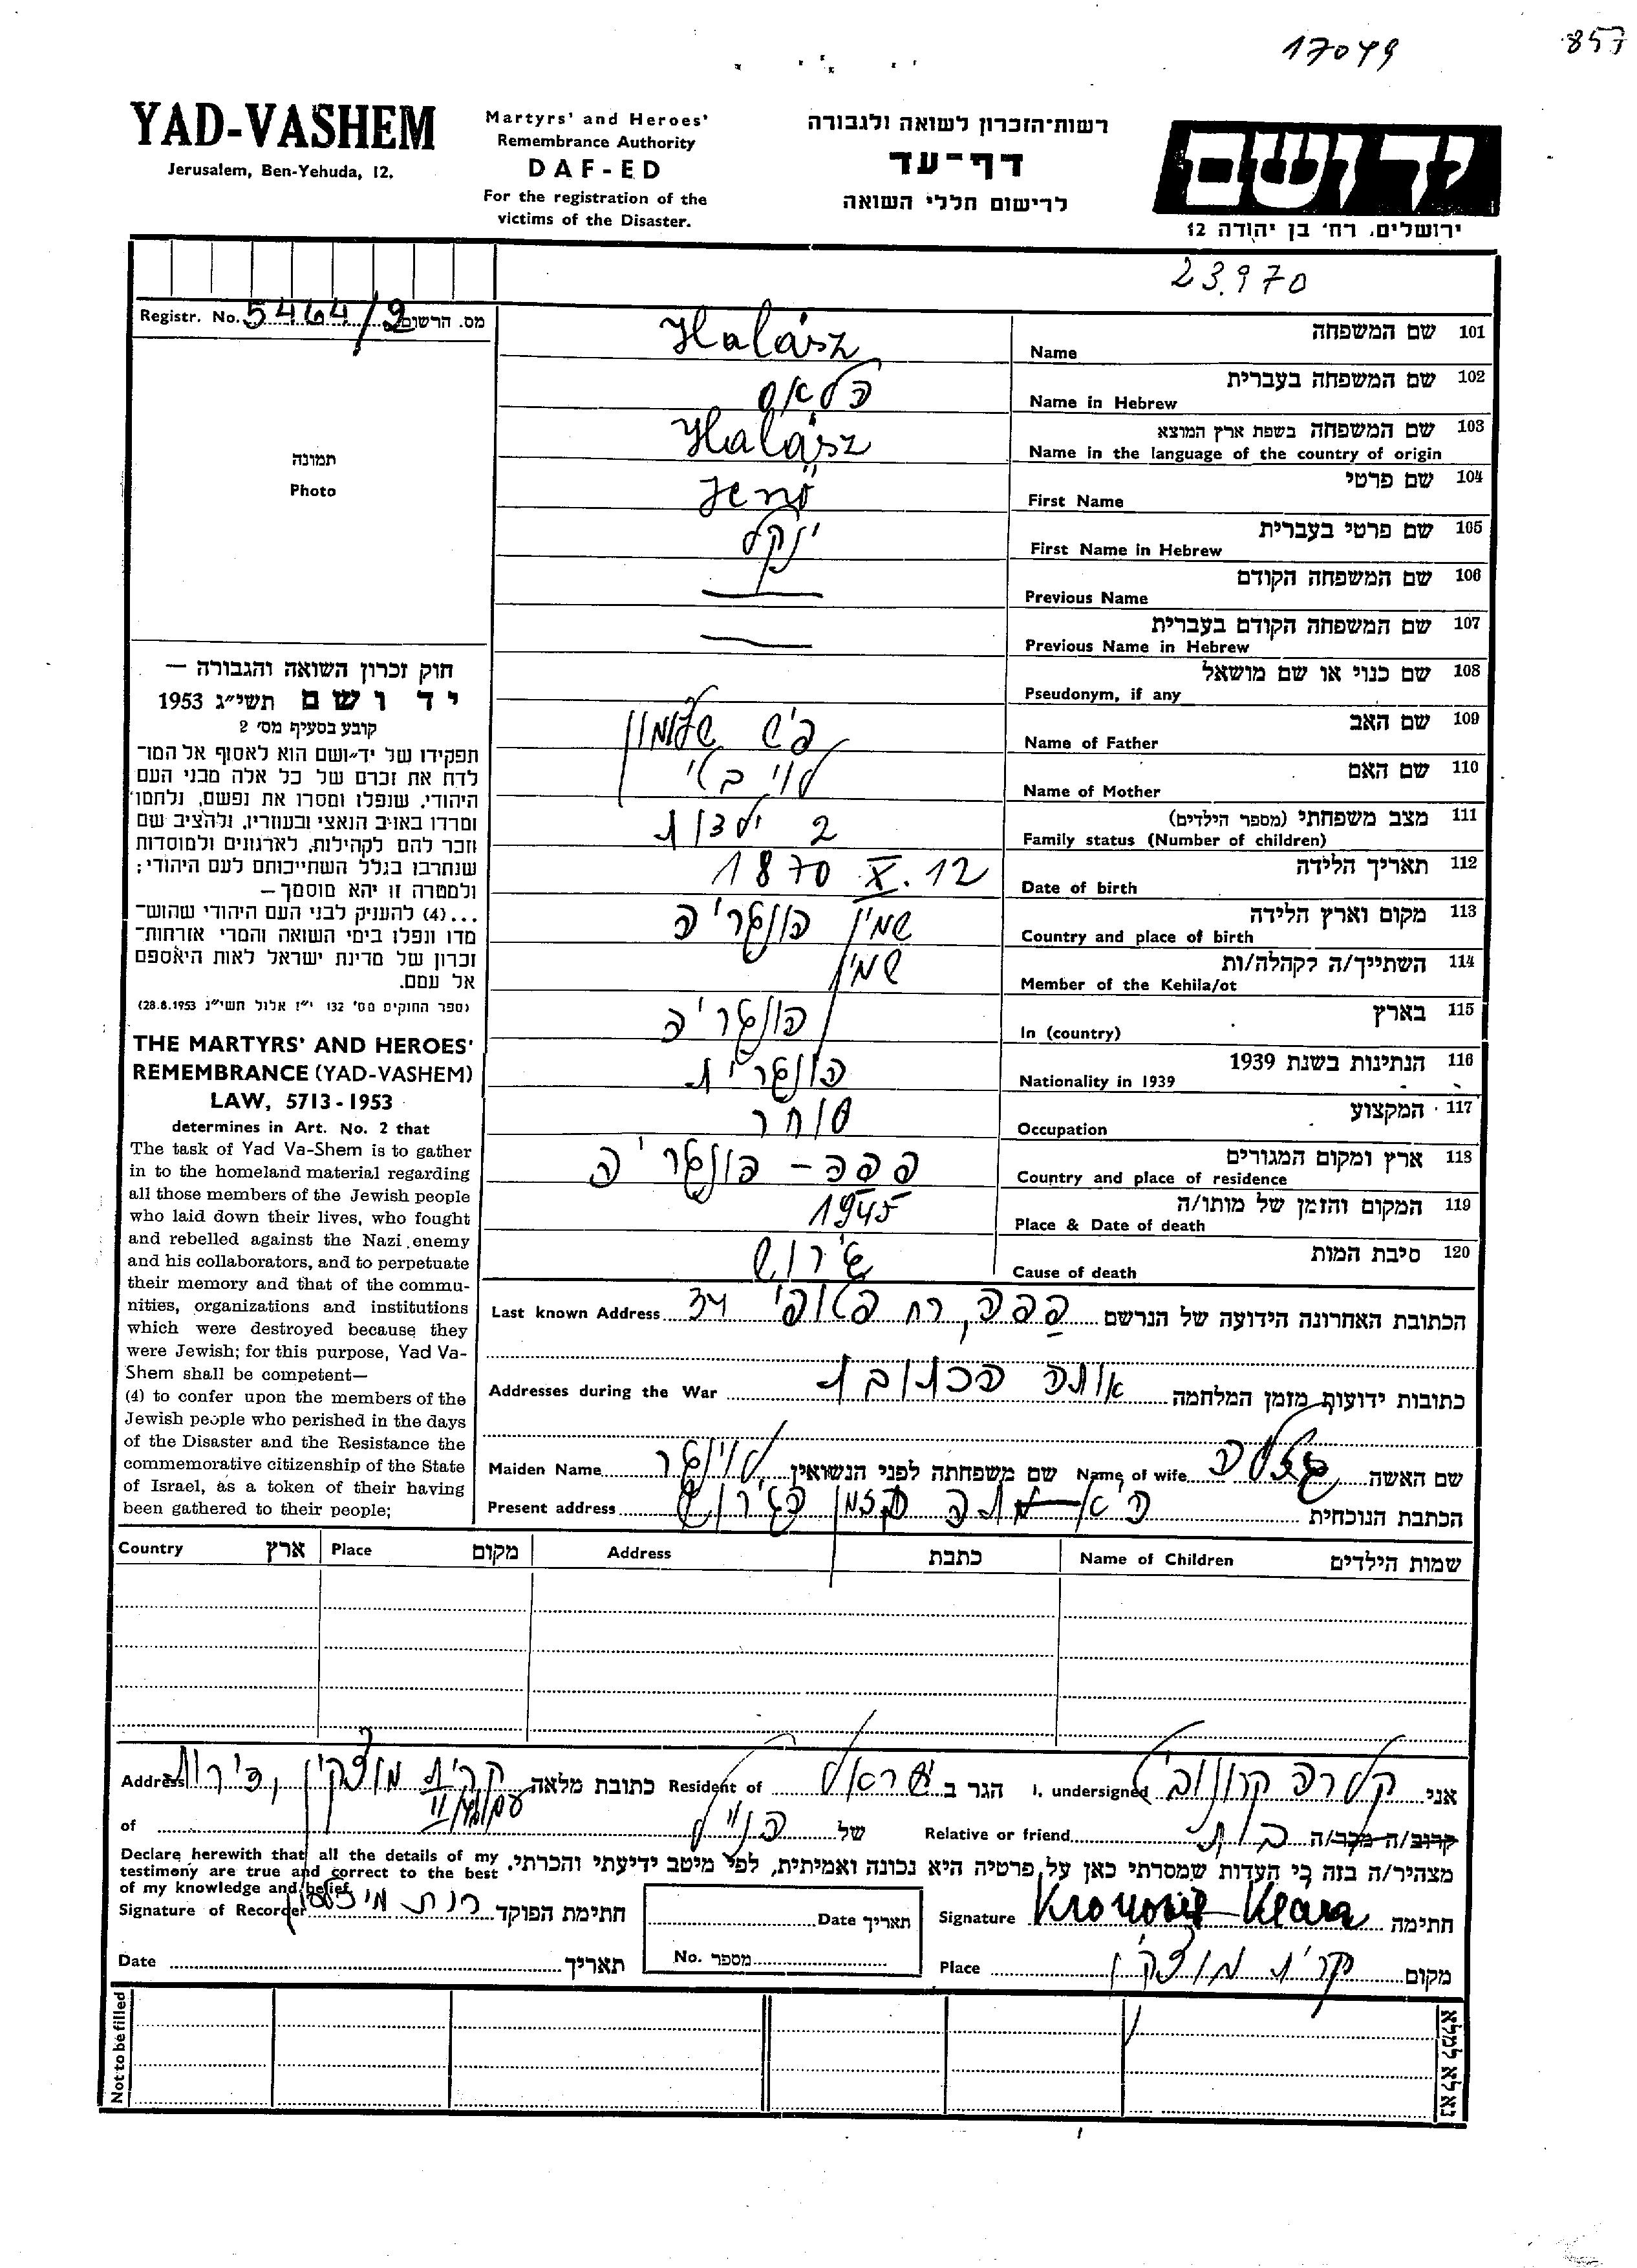 17049
857
YAD-VASHEM
Jerusalem, Ben-Yehuda, 12.
Martyrs' and Heroes'
Remembrance Authority
DAF-ED
For the registration of the
victims of the Disaster.
רשות־הזכרון לשואה ולגבורה
דף־עד
לרישום חללי השואה
יד ושם
ירושלים, רח' בן יהודה 12
23.970
Registr. No. 5464/9 מס. הרשום
תמונה
Photo
חוק זכרון השואה והגבורה —
יד ושם תשי״ג 1953
קובע בסעיף מס' 2
תפקידו של יד־ושם הוא לאסוף אל המו־
לדת את זכרם של כל אלה מבני העם
היהודי, שנפלו ומסרו את נפשם, נלחמו
ומרדו באויב הנאצי ובעוזריו, ולהציב שם
וזכר להם לקהילות, לארגונים ולמוסדות
שנחרבו בגלל השתייכותם לעם היהודי;
ולמטרה זו יהא מוסמך—
...(4) להעניק לבני העם היהודי שהוש־
מדו ונפלו בימי השואה והמרי אזרחות־
זכרון של מדינת ישראל לאות היאספם
אל עמם.
(ספר החוקים מס' 132 י״ז אלול תשי״ג 28.8.1953)
THE MARTYRS' AND HEROES'
REMEMBRANCE (YAD-VASHEM)
LAW, 5713-1953
determines in Art. No. 2 that
The task of Yad Va-Shem is to gather
in to the homeland material regarding
all those members of the Jewish people
who laid down their lives, who fought
and rebelled against the Nazi enemy
and his collaborators, and to perpetuate
their memory and that of the commu-
nities, organizations and institutions
which were destroyed because they
were Jewish; for this purpose, Yad Va-
Shem shall be competent—
(4) to confer upon the members of the
Jewish people who perished in the days
of the Disaster and the Resistance the
commemorative citizenship of the State
of Israel, as a token of their having
been gathered to their people;
101 שם המשפחה
Name Halász
102 שם המשפחה בעברית
Name in Hebrew הלאס
103 שם המשפחה בשפת ארץ המוצא
Name in the language of the country of origin Halász
104 שם פרטי
First Name Jenő
105 שם פרטי בעברית
First Name in Hebrew ינקל
106 שם המשפחה הקודם
Previous Name —
107 שם המשפחה הקודם בעברית
Previous Name in Hebrew —
108 שם כנוי או שם מושאל
Pseudonym, if any
109 שם האב
Name of Father פיש שלומון
110 שם האם
Name of Mother לוי
111 מצב משפחתי (מספר הילדים)
Family status (Number of children) 2 ילדות
112 תאריך הלידה
Date of birth 1870 X. 12
113 מקום וארץ הלידה
Country and place of birth הונגריה
114 השתייך/ה לקהלה/ות
Member of the Kehila/ot
115 בארץ
In (country) הונגריה
116 הנתינות בשנת 1939
Nationality in 1939 הונגרית
117 המקצוע
Occupation סוחר
118 ארץ ומקום המגורים
Country and place of residence פפה - הונגריה
119 המקום והזמן של מותו/ה
Place & Date of death 1945
120 סיבת המות
Cause of death גירוש
הכתובת האחרונה הידועה של הנרשם פפה, רח פטופי 34 Last known Address
כתובות ידועות מזמן המלחמה אותה הכתובת Addresses during the War
שם האשה גיזלה Name of wife שם משפחתה לפני הנשואין Maiden Name
הכתבת הנוכחית היא מתה בזמן הגירוש Present address
שמות הילדים Name of Children כתבת Address מקום Place ארץ Country
אני קלרה I, undersigned הגר ב ישראל Resident of כתובת מלאה קרית מוצקין Address
קרוב/ה מכר/ה בת Relative or friend של הנ״ל of
מצהיר/ה בזה כי העדות שמסרתי כאן על פרטיה היא נכונה ואמיתית, לפי מיטב ידיעתי והכרתי.
Declare herewith that all the details of my
testimony are true and correct to the best
of my knowledge and belief.
חתימה Klara Signature תאריך Date חתימת הפוקד Signature of Recorder
מקום קרית מוצקין Place מספר No. תאריך Date
Not to be filled
נא לא למלא